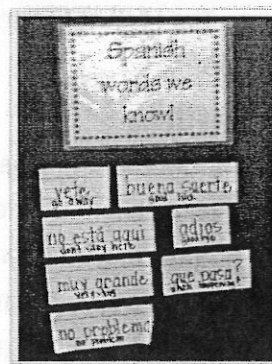 Spanish
words we
know!
vete
go away
buena suerte
good luck
no está aquí
adios
goodbye
muy grande
very big
que pasa?
what happened?
no problema
no problem